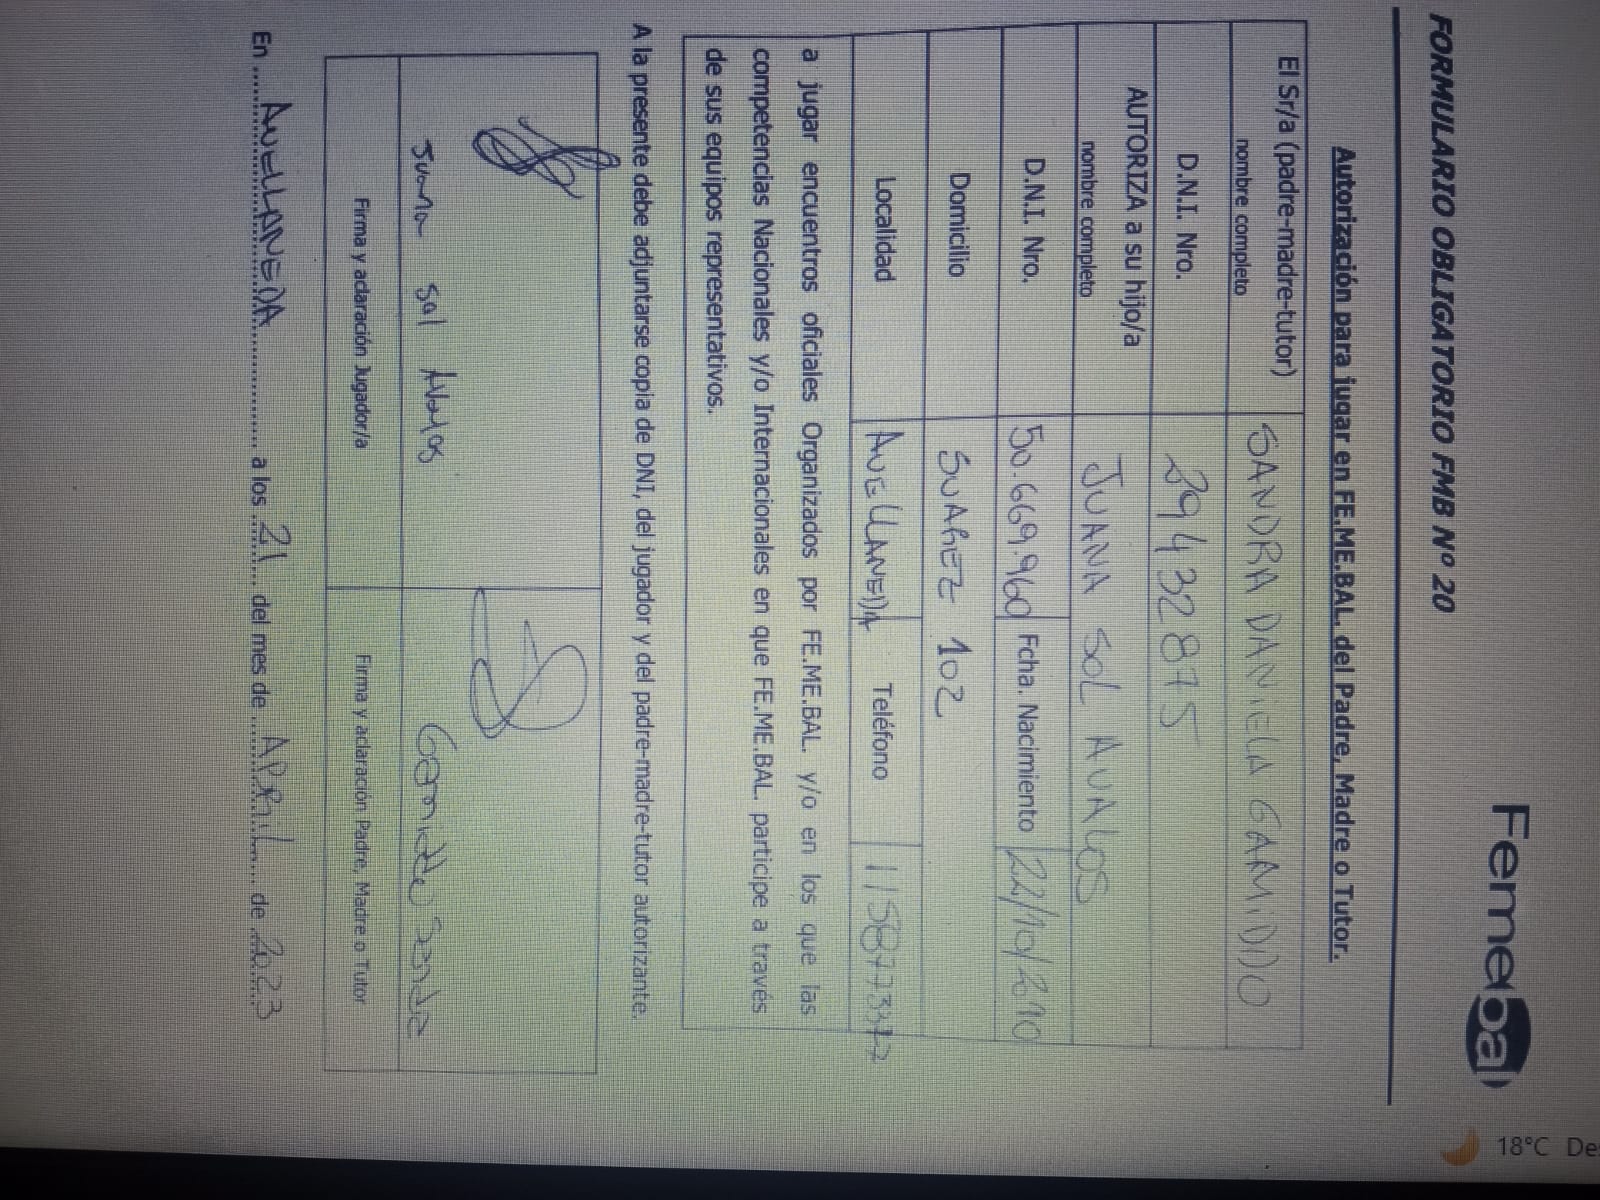 Femebal
FORMULARIO OBLIGATORIO FMB Nº 20
Autorización para jugar en FE.ME.BAL. del Padre, Madre o Tutor.
El Sr/a (padre-madre-tutor) nombre completo SANDRA DANIELA GAMIDDO
D.N.I. Nro. 29432875
AUTORIZA a su hijo/a nombre completo JUANA SOL AVALOS
D.N.I. Nro. 50.669.960 Fcha. Nacimiento 22/10/2010
Domicilio SUAREZ 102
Localidad AVELLANEDA Teléfono
a jugar encuentros oficiales Organizados por FE.ME.BAL. y/o en los que las
competencias Nacionales y/o Internacionales en que FE.ME.BAL. participe a través
de sus equipos representativos.
A la presente debe adjuntarse copia de DNI, del jugador y del padre-madre-tutor autorizante.
Juana Sol Avalos
Gamiddo Sandra
Firma y aclaración Jugador/a
Firma y aclaración Padre, Madre o Tutor
En AVELLANEDA a los 21 del mes de APRIL de 2023
18°C De